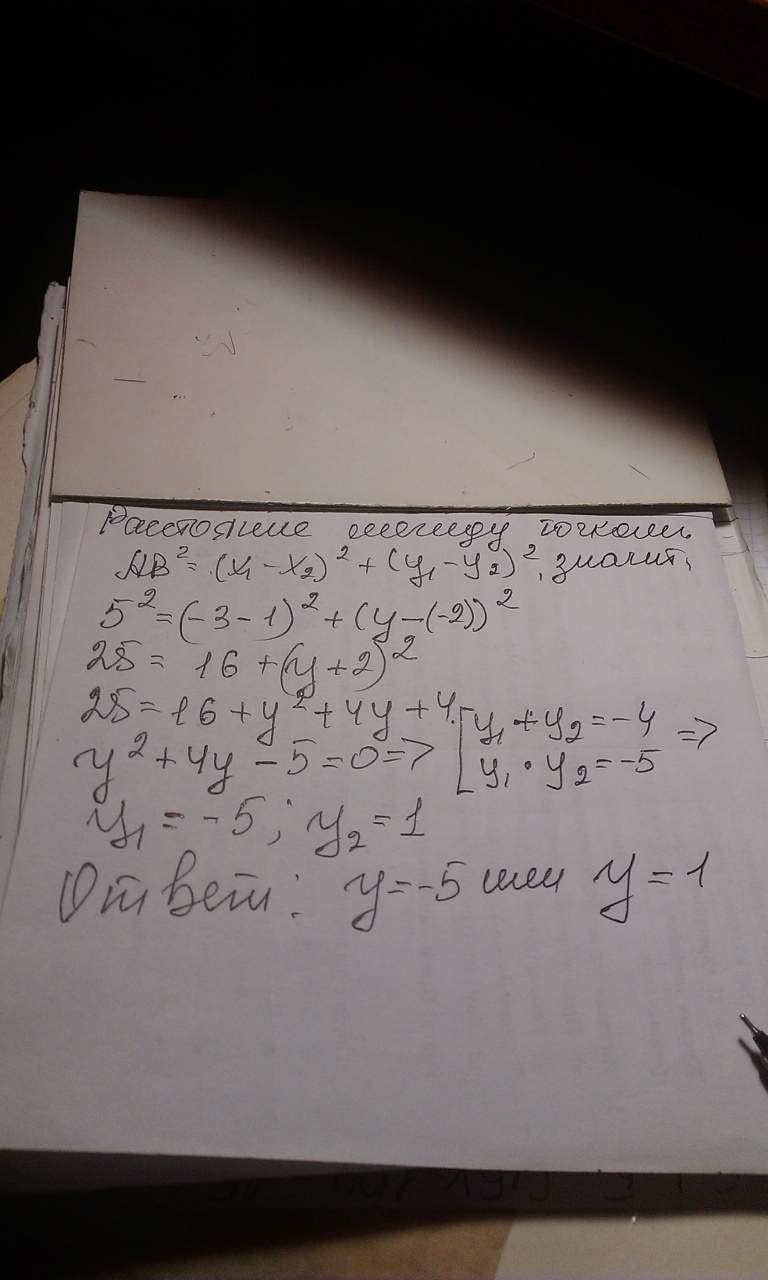 Расстояние между точками
AB² = (x₁ - x₂)² + (y₁ - y₂)², значит,
5² = (-3 - 1)² + (y - (-2))²
25 = 16 + (y + 2)²
25 = 16 + y² + 4y + 4.
y² + 4y - 5 = 0 => [ y₁ + y₂ = -4
y₁ · y₂ = -5 =>
y₁ = -5; y₂ = 1
Ответ: y = -5 или y = 1